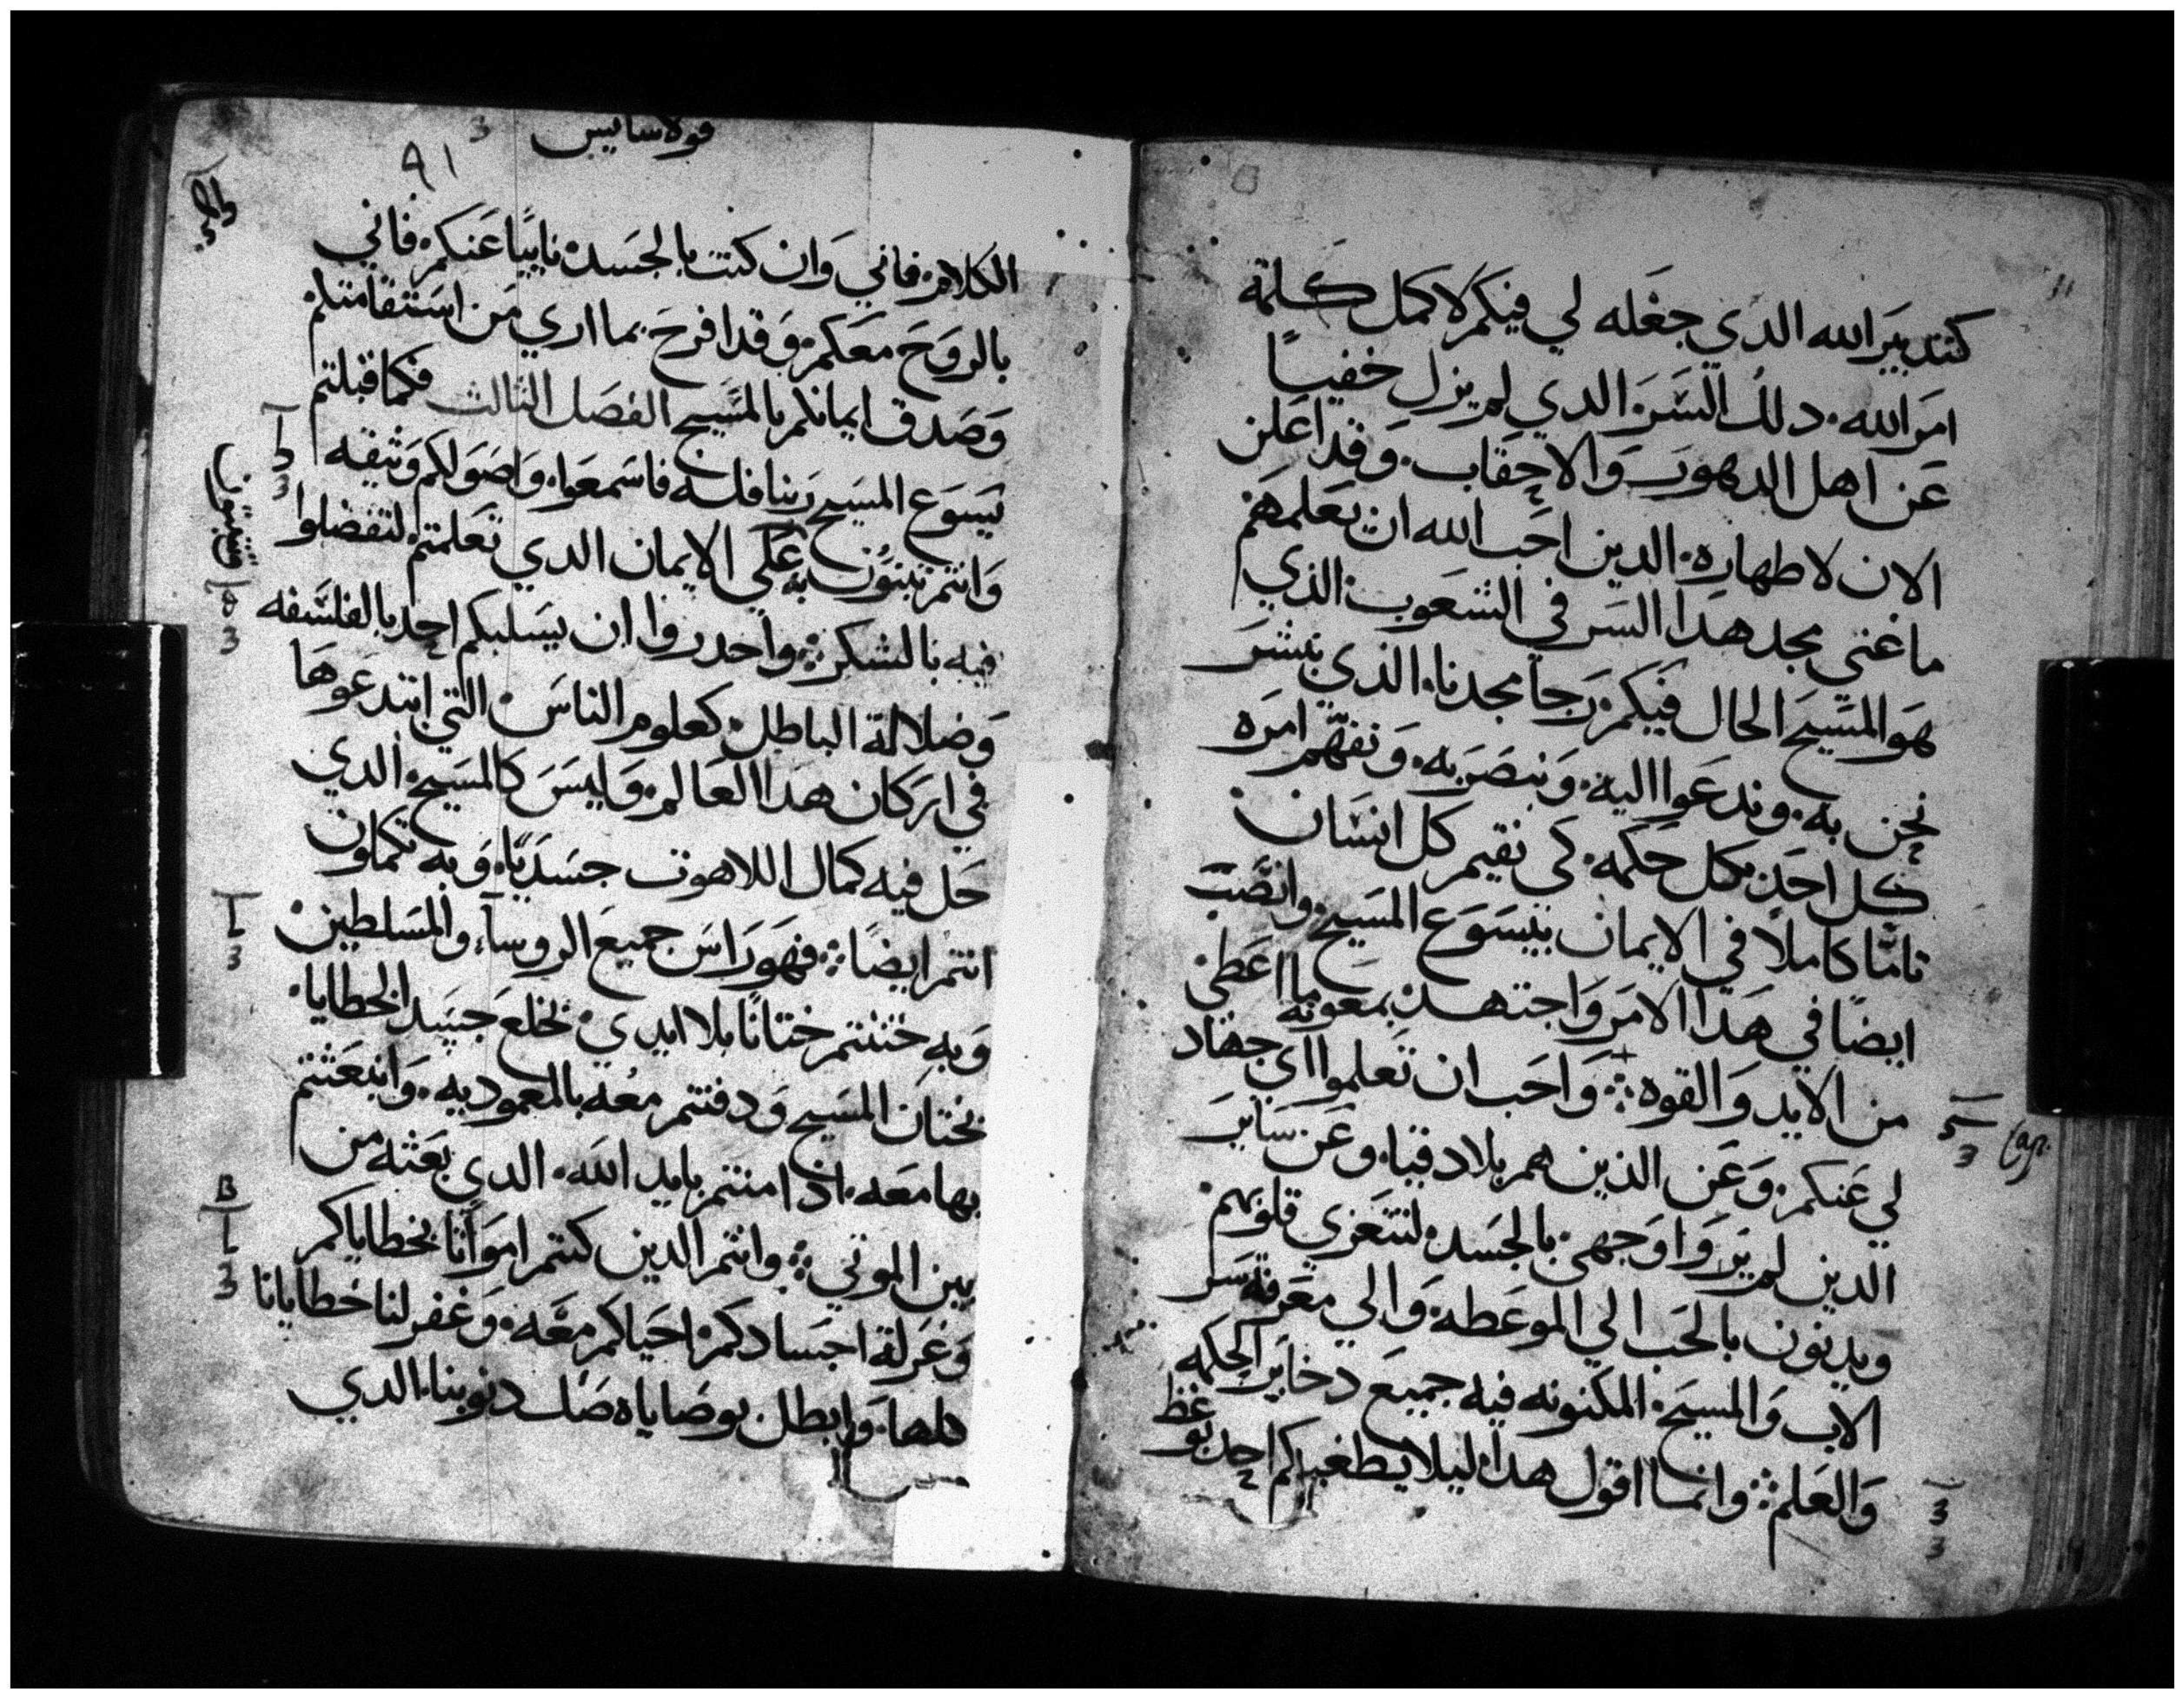 كتدبير الله الدي جعله لي فيكم لاكمل كلمة
امر الله. دلك السر الدي لم يزل خفيًا
عن اهل الدهور والاحقاب. وقد اعلن
الان لاطهاره. الدين احب الله ان يعلمهم
ما غني مجد هدا السر في الشعوب. الذي
هو المسيح الحال فيكم رجا مجدنا. الذي نبشر
نحن به. وندعوا اليه. ونبصر به. ونفهم امره
كل احد بكل حكمه. كي نقيم كل انسان
تامًا كاملاً في الايمان بيسوع المسيح. وانصب
ايضًا في هدا الامر واجتهد بمعونة ما اعطى
من الايد والقوه ؞ واحب ان تعلموا اي جهاد
لي عنكم. وعن الذين هم بلادقيا. وعن ساير
الدين لم يروا وجهي بالجسد. لتتعزي قلوبهم
ويدنون بالحب الي الموعطه. والي معرفة سر
الاب والمسيح. المكنونه فيه جميع دخاير الحكمه
والعلم ؞ وانما اقول هدا. ليلا يطغيكم احد بوعظ
قولاسايس
3
٩١
الكلام. فاني وان كنت بالجسد نايبًا عنكم. فاني
بالروح معكم. وقد افرح بما اري من استقامتكم
وصدق ايمانكم بالمسيح الفصل الثالث فكما قبلتم
يسوع المسيح ربنا فاسمعوا. واصولكم وثيقه
وانتم تبنون به علي الايمان الدي تعلمتم. لتفضلوا
فيه بالشكر ؞ واحدروا ان يسلبكم احد بالفلسفه
وضلالة الباطل. كعلوم الناس. التي ابتدعوها
في اركان هدا العالم. وليس كالمسيح. الدي
حل فيه كمال اللاهوت جسديًا. وبه تكملون
انتم ايضًا ؞ فهو راس جميع الروسآ. والمسلطين.
وبه ختنتم ختانًا بلا ايدي. بخلع جسد الخطايا.
بختان المسيح ودفنتم معه بالمعموديه. وانبعثتم
بها معه. اذ امنتم بايد الله. الدي بعثه من
بين الموتي ؞ وانتم الدين كنتم امواتًا بخطاياكم
وغرلة اجسادكم. احياكم معه. وغفر لنا خطايانا
كلها. وابطل بوصاياه صك دنوبنا. الدي